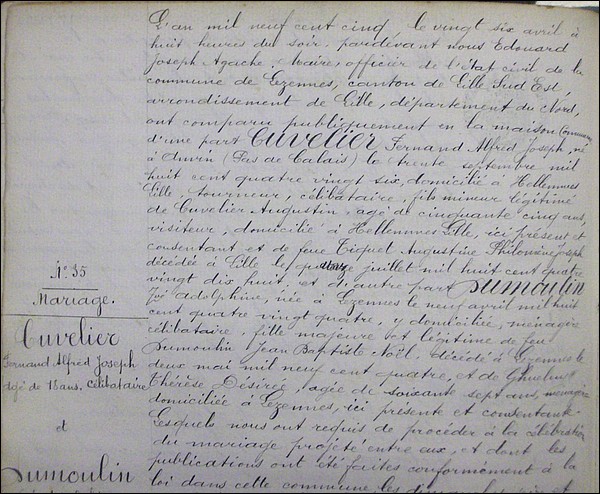 L'an mil neuf cent cinq le vingt six avril à
huit heures du soir, pardevant nous Edouard
Joseph Agache, Maire, officier de l'état civil de la
commune de Lezennes, canton de Lille Sud Est,
arrondissement de Lille, département du Nord,
ont comparu publiquement en la maison Commune
d'une part Cuvelier Fernand Alfred Joseph, né
à Annœulin (Pas de Calais) le trente septembre mil
huit cent quatre vingt six, domicilié à Hellemmes
Lille, tourneur, célibataire, fils mineur légitime
de Cuvelier Augustin, agé de cinquante cinq ans,
visiteur, domicilié à Hellemmes Lille, ici présent et
consentant et de feue Tiquet Augustine Philomène Joseph
décédée à Lille le juillet mil huit cent quatre
vingt dix huit, et d'autre part Dumoulin
Adolphine, née à Lezennes le neuf avril mil huit
cent quatre vingt quatre, y domiciliée, ménagère
célibataire, fille majeure et légitime de feu
Dumoulin Jean Baptiste Noël, décédé à Lezennes le
deux mai mil neuf cent quatre, et de
Thérèse Désirée, agée de soixante sept ans, ménagère
domiciliée à Lezennes, ici présente et consentante
Lesquels nous ont requis de procéder à la célébration
du mariage projeté entre eux, et dont les
publications ont été faites conformément à la
loi dans cette commune les
N° 35
Mariage.
Cuvelier
Fernand Alfred Joseph
agé de 18 ans. Célibataire
et
Dumoulin